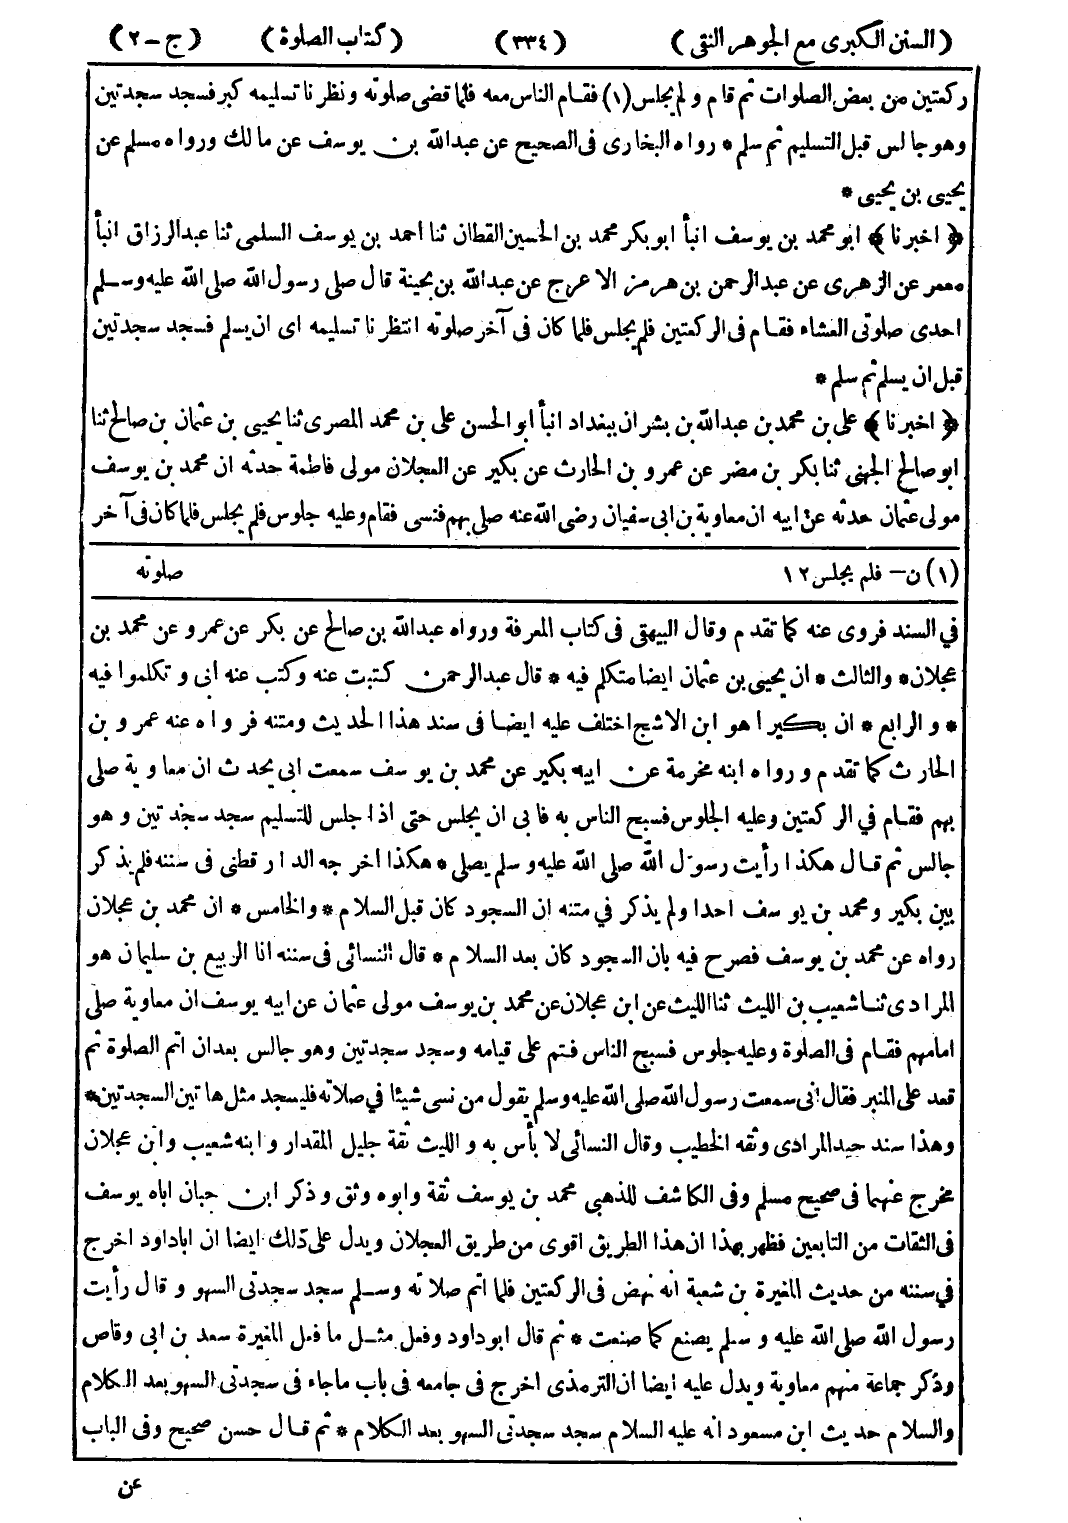 ( السنن الكبرى مع الجوهر النقى ) ( ٣٣٤ ) ( كتاب الصلوة ) ( ج - ٢ )
ركعتين من بعض الصلوات ثم قام ولم يجلس (١) فقام الناس معه فلما قضى صلوته ونظرنا تسليمه كبر فسجد سجدتين
وهو جالس قبل التسليم ثم سلم * رواه البخارى فى الصحيح عن عبدالله بن يوسف عن مالك ورواه مسلم عن
يحيى بن يحيى *
﴿ اخبرنا ﴾ ابو محمد بن يوسف انبأ ابوبكر محمد بن الحسين القطان ثنا احمد بن يوسف السلمى ثنا عبدالرزاق انبأ
معمر عن الزهرى عن عبدالرحمن بن هرمز الاعرج عن عبدالله بن بحينة قال صلى رسول الله صلى الله عليه وسلم
احدى صلوتى العشاء فقام فى الركعتين فلم يجلس فلما كان فى آخر صلوته انتظرنا تسليمه اى ان يسلم فسجد سجدتين
قبل ان يسلم ثم سلم *
﴿ اخبرنا ﴾ على بن محمد بن عبدالله بن بشران ببغداد انبأ ابو الحسن على بن محمد المصرى ثنا يحيى بن عثمان بن صالح ثنا
ابو صالح الجهنى ثنا بكر بن مضر عن عمرو بن الحارث عن بكير عن العجلان مولى فاطمة حدثه ان محمد بن يوسف
مولى عثمان حدثه عن ابيه ان معاوية بن ابى سفيان رضى الله عنه صلى بهم فنسى فقام وعليه جلوس فلم يجلس فلما كان فى آخر
(١) ن - فلم يجلس ١٢ صلوته
في السند فروى عنه كما تقدم وقال البيهقى فى كتاب المعرفة ورواه عبدالله بن صالح عن بكر عن عمرو عن محمد بن
عجلان * والثالث * ان يحيى بن عثمان ايضا متكلم فيه * قال عبدالرحمن كتبت عنه وكتب عنه ابى وتكلموا فيه
* والرابع * ان بكيرا هو ابن الاشج اختلف عليه ايضا فى سند هذا الحديث ومتنه فرواه عنه عمرو بن
الحارث كما تقدم ورواه ابنه مخرمة عن ابيه بكير عن محمد بن يوسف سمعت ابى يحدث ان معاوية صلى
بهم فقام في الركعتين وعليه الجلوس فسبح الناس به فابى ان يجلس حتى اذا جلس للتسليم سجد سجدتين وهو
جالس ثم قال هكذا رأيت رسول الله صلى الله عليه وسلم يصلى * هكذا اخرجه الدارقطنى فى سننه فلم يذكر
بين بكير ومحمد بن يوسف احدا ولم يذكر في متنه ان السجود كان قبل السلام * والخامس * ان محمد بن عجلان
رواه عن محمد بن يوسف فصرح فيه بان السجود كان بعد السلام * قال النسائى فى سننه انا الربيع بن سليمان هو
المرادى ثنا شعيب بن الليث ثنا الليث عن ابن عجلان عن محمد بن يوسف مولى عثمان عن ابيه يوسف ان معاوية صلى
امامهم فقام فى الصلوة وعليه جلوس فسبح الناس فتم على قيامه وسجد سجدتين وهو جالس بعد ان اتم الصلوة ثم
قعد على المنبر فقال انى سمعت رسول الله صلى الله عليه وسلم يقول من نسى شيئا في صلاته فليسجد مثل هاتين السجدتين *
وهذا سند جيد المرادى وثقه الخطيب وقال النسائى لا بأس به والليث ثقة جليل المقدار وابنه شعيب وابن عجلان
مخرج عنهما فى صحيح مسلم وفى الكاشف للذهبي محمد بن يوسف ثقة وابوه وثق وذكر ابن حبان اباه يوسف
فى الثقات من التابعين فظهر بهذا ان هذا الطريق اقوى من طريق العجلان ويدل على ذلك ايضا ان اباداود اخرج
في سننه من حديث المغيرة بن شعبة انه نهض فى الركعتين فلما اتم صلاته وسلم سجد سجدتى السهو وقال رأيت
رسول الله صلى الله عليه وسلم يصنع كما صنعت * ثم قال ابوداود وفعل مثل ما فعل المغيرة سعد بن ابى وقاص
وذكر جماعة منهم معاوية ويدل عليه ايضا ان الترمذى اخرج فى جامعه فى باب ماجاء فى سجدتى السهو بعد الكلام
والسلام حديث ابن مسعود انه عليه السلام سجد سجدتى السهو بعد الكلام * ثم قال حسن صحيح وفى الباب
عن